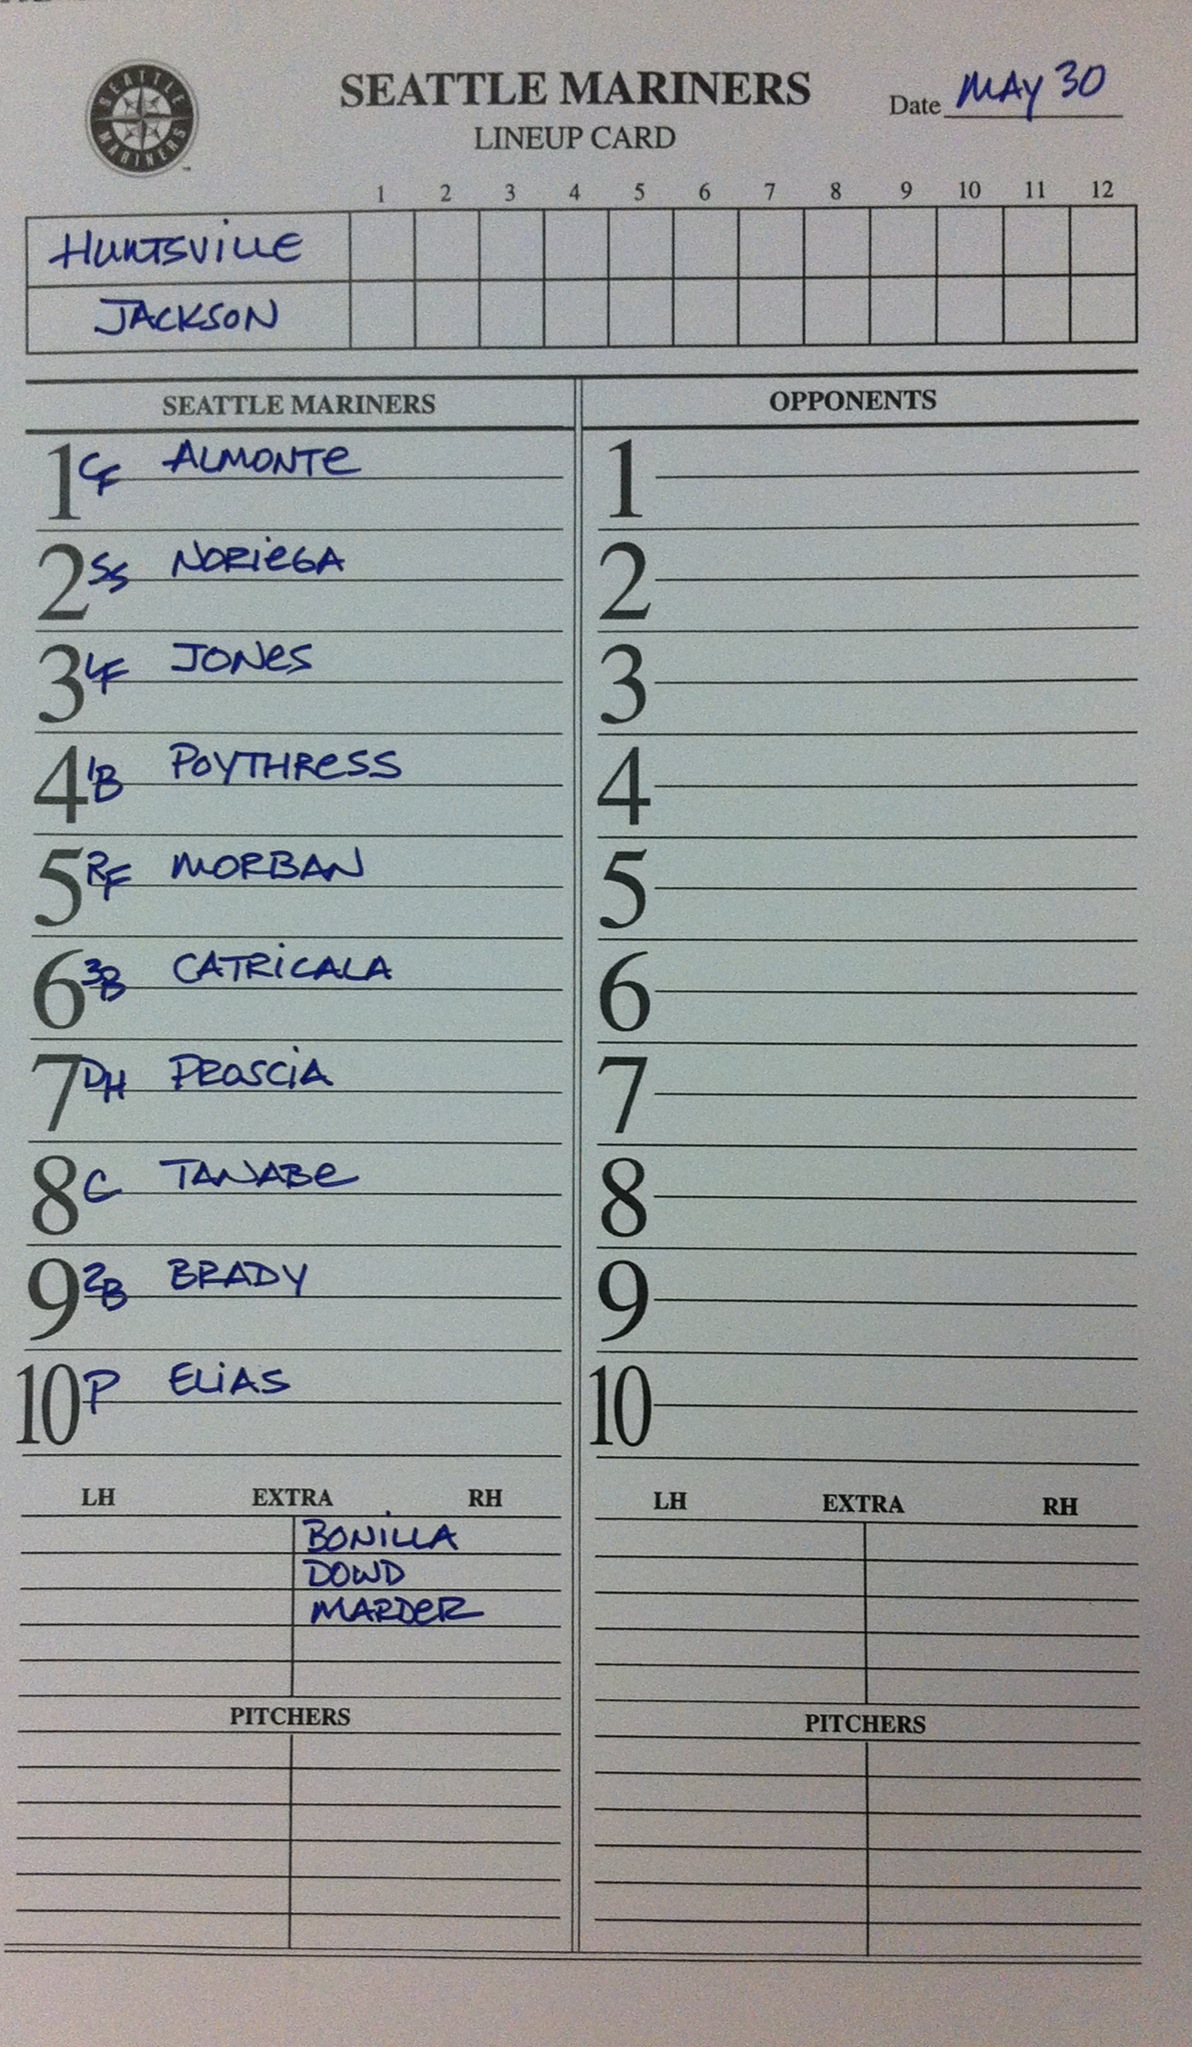 SEATTLE MARINERS
SEATTLE MARINERS
Date MAY 30
LINEUP CARD
1 2 3 4 5 6 7 8 9 10 11 12
HUNTSVILLE
JACKSON
SEATTLE MARINERS
1 CF ALMONTE
2 SS NORIEGA
3 LF JONES
4 1B POYTHRESS
5 RF MORBAN
6 3B CATRICALA
7 DH PROSCIA
8 C TANABE
9 2B BRADY
10 P ELIAS
LH EXTRA RH
BONILLA
DOWD
MARDER
PITCHERS
OPPONENTS
1
2
3
4
5
6
7
8
9
10
LH EXTRA RH
PITCHERS